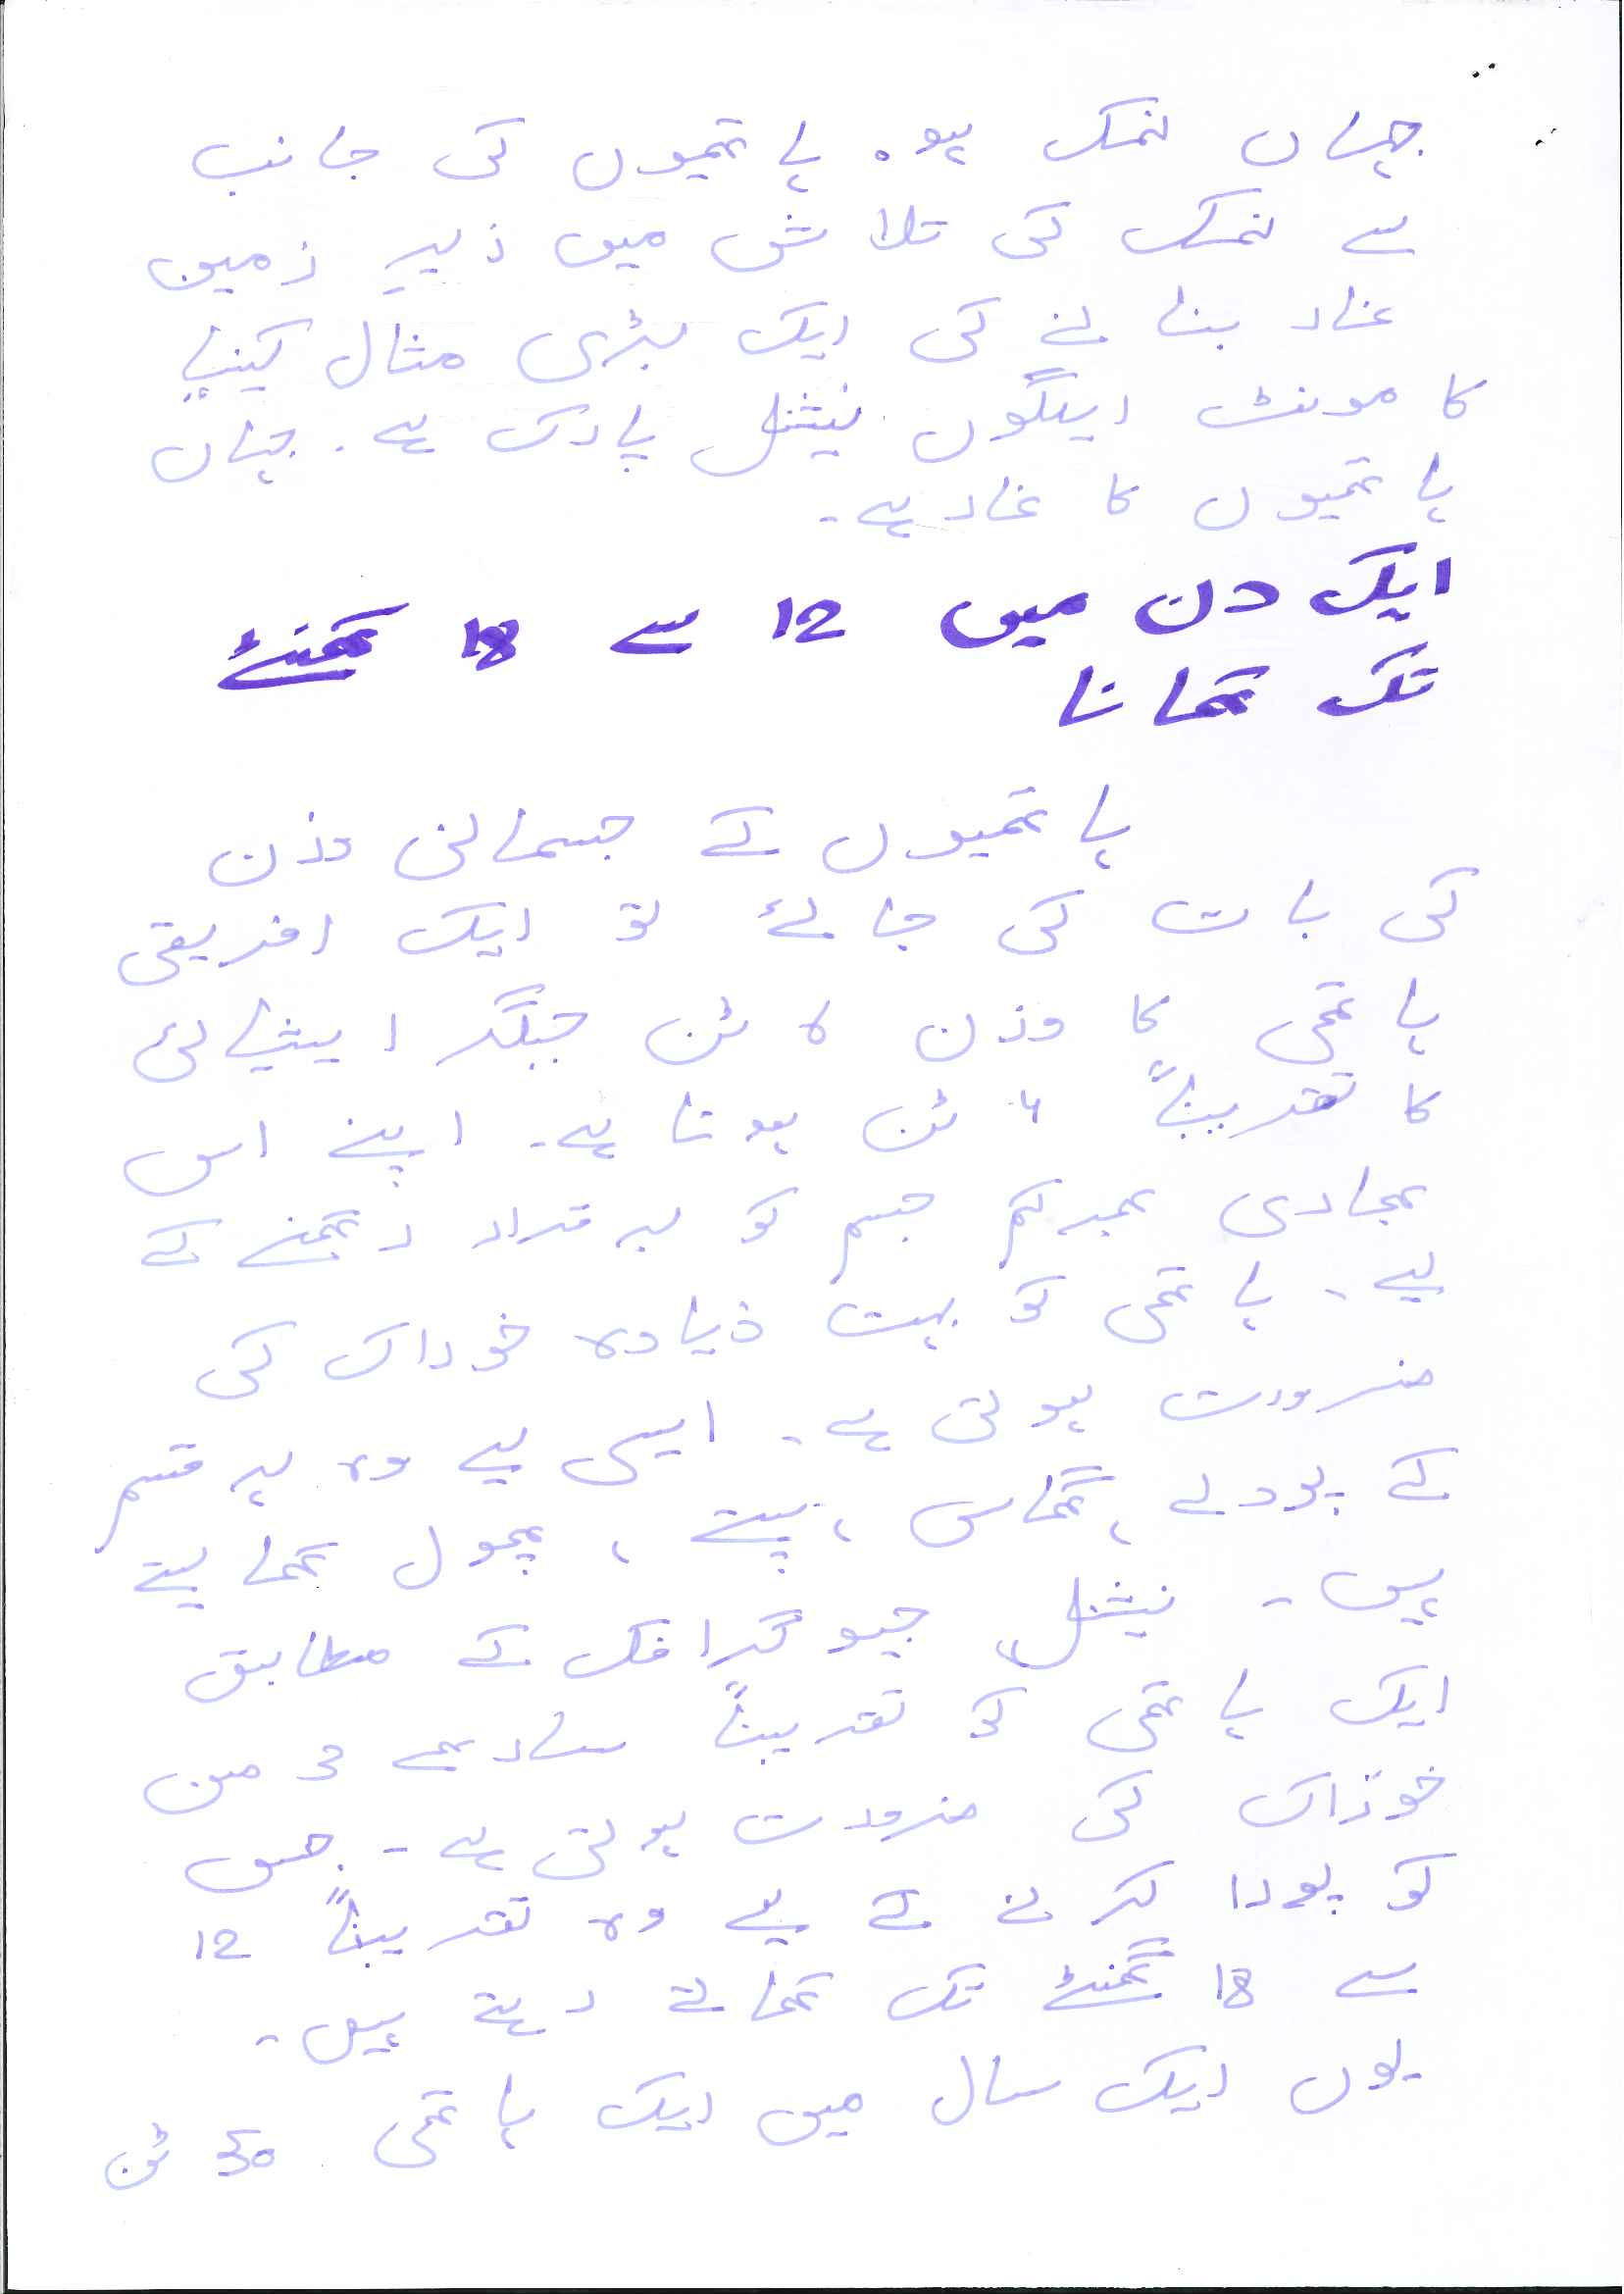 جہاں نمک ہو۔ ہاتھیوں کی جانب
سے نمک کی تلاش میں زیرِ زمین
غار بنانے کی ایک بڑی مثال کینیا
کا مونٹ ایلگون نیشنل پارک ہے۔ جہاں
ہاتھیوں کا غار ہے۔
ایک دن میں 12 سے 18 گھنٹے
تک کھانا
ہاتھیوں کے جسمانی وزن
کی بات کی جائے تو ایک افریقی
ہاتھی کا وزن ٹن جبکہ ایشیائی
کا تقریباً ٹن ہوتا ہے۔ اپنے اس
بھاری بھرکم جسم کو برقرار رکھنے کے
لیے، ہاتھی کو بہت زیادہ خوراک کی
ضرورت ہوتی ہے۔ اسی لیے وہ ہر قسم
کے پودے، گھاس، پتے، پھول کھا لیتے
ہیں۔ نیشنل جیوگرافک کے مطابق
ایک ہاتھی کو تقریباً ساڑھے 3 من
خوراک کی ضرورت ہوتی ہے۔ جس
کو پورا کرنے کے لیے وہ تقریباً 12
سے 18 گھنٹے تک کھاتے رہتے ہیں۔
یوں ایک سال میں ایک ہاتھی 50 ٹن